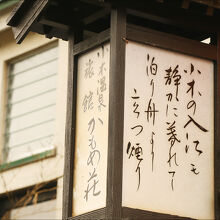 小木の入江も
静かに暮れて
泊り舟より
立つ煙り
小木温泉
旅館 かもめ荘